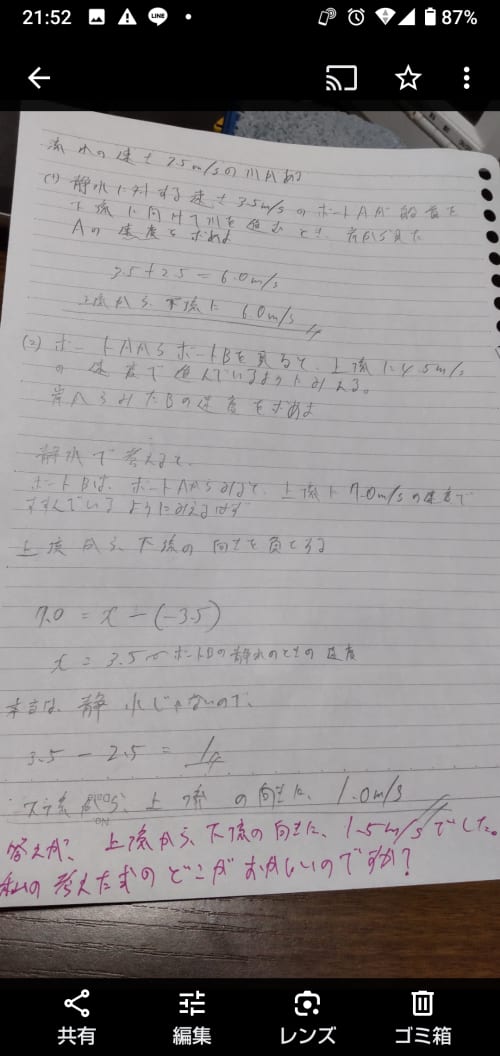 21:52
LINE
87%
流れの速さ2.5m/sの川がある
(1) 静水に対する速さ3.5m/sのボートAが
上流に向けて川を進むとき、岸から見た
Aの速度を求めよ
3.5+2.5=6.0m/s
上流から下流に 6.0m/s
(2) ボートAからボートBを見ると、上流に4.5m/s
の速度で進んでいるようにみえる。
岸からみたBの速度を求めよ
静水で考えると、
ボートBは、ボートAからみると、上流に7.0m/sの速度で
すすんでいるようにみえるはず
上流から、下流の向きを負とする
7.0 = x - (-3.5)
x = 3.5 ボートBの静水のときの速度
本当は、静水じゃないので、
3.5 - 2.5 = 1
下流から、上流の向きに、1.0m/s
答えが、上流から、下流の向きに、1.5m/sでした。
私の考え方のどこがおかしいのですか?
共有
編集
レンズ
ゴミ箱